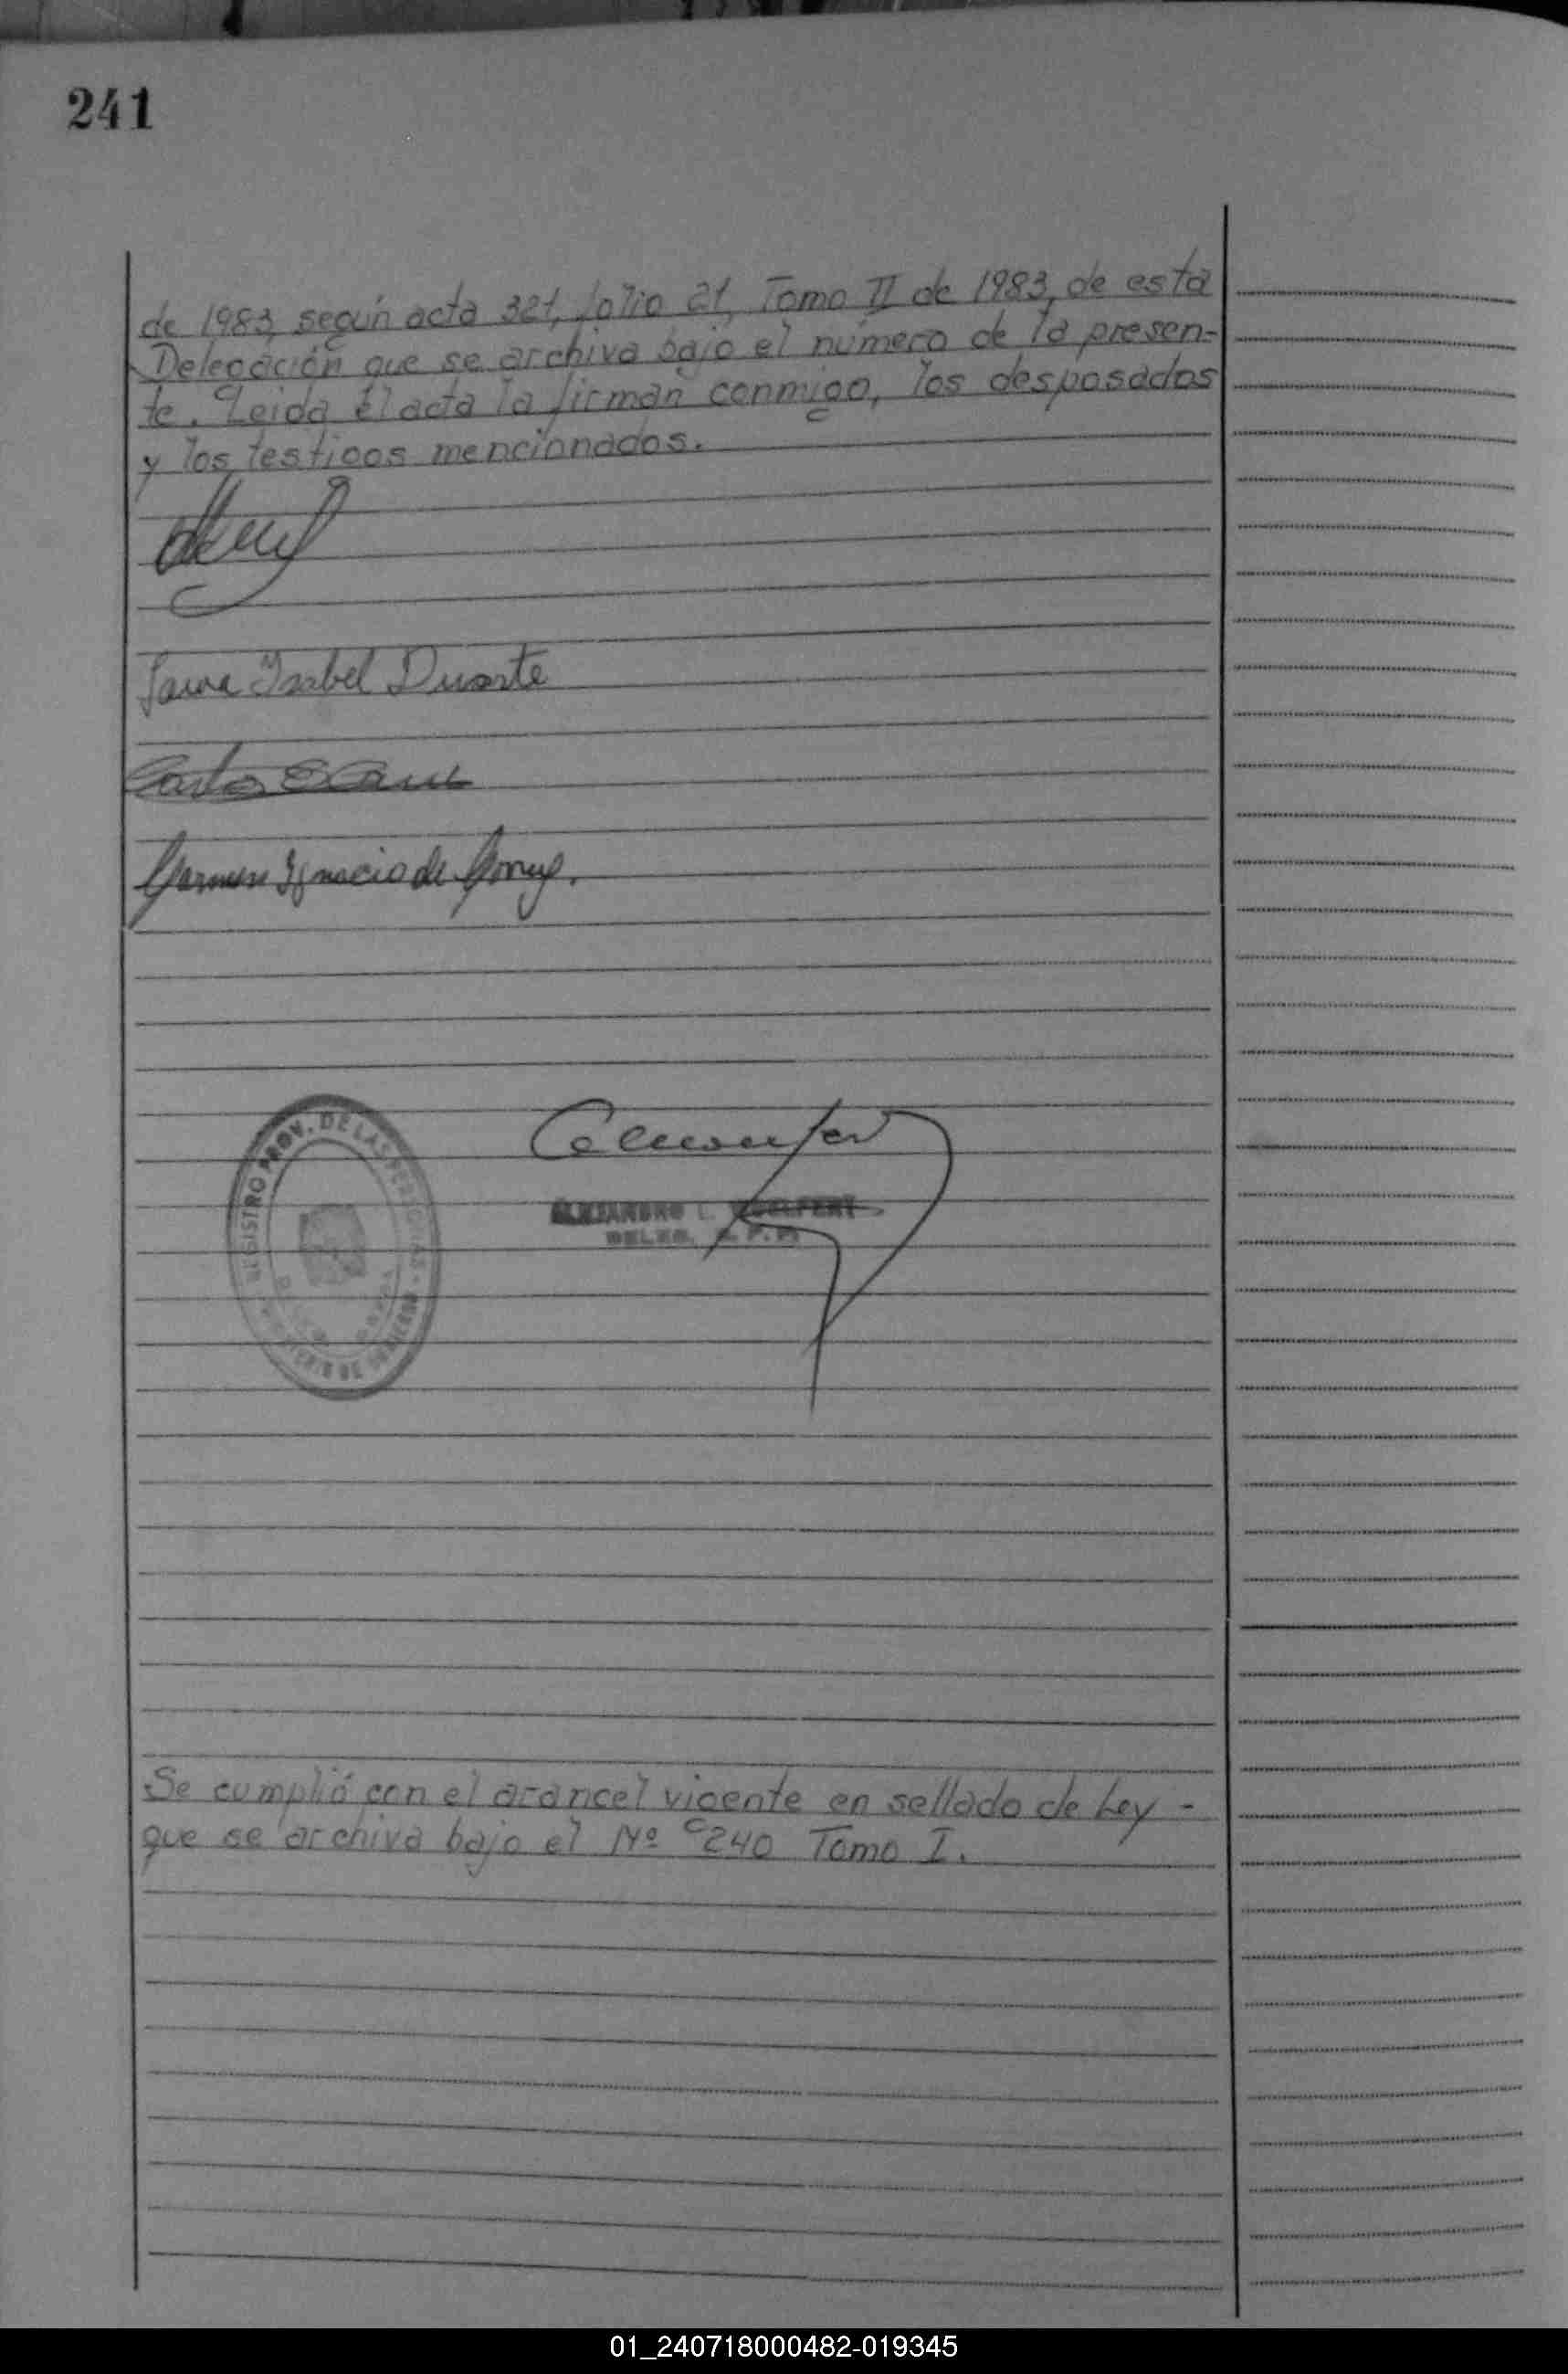 241
de 1983, según acta 321, folio 21, Tomo II de 1983, de esta
Delegación que se archiva bajo el número de la presen-
te. Leida el acta la firman conmigo, los desposados
y los testigos mencionados.
Isabel Duarte
Carlos
Carmen Ignacio de
REGISTRO PROV. DE LAS PERSONAS
MINISTERIO DE GOBIERNO
ALEJANDRO L.
DELEG. R. P. P.
Se cumplió con el arancel vigente en sellado de Ley -
que se archiva bajo el Nº 240 Tomo I.
01_240718000482-019345